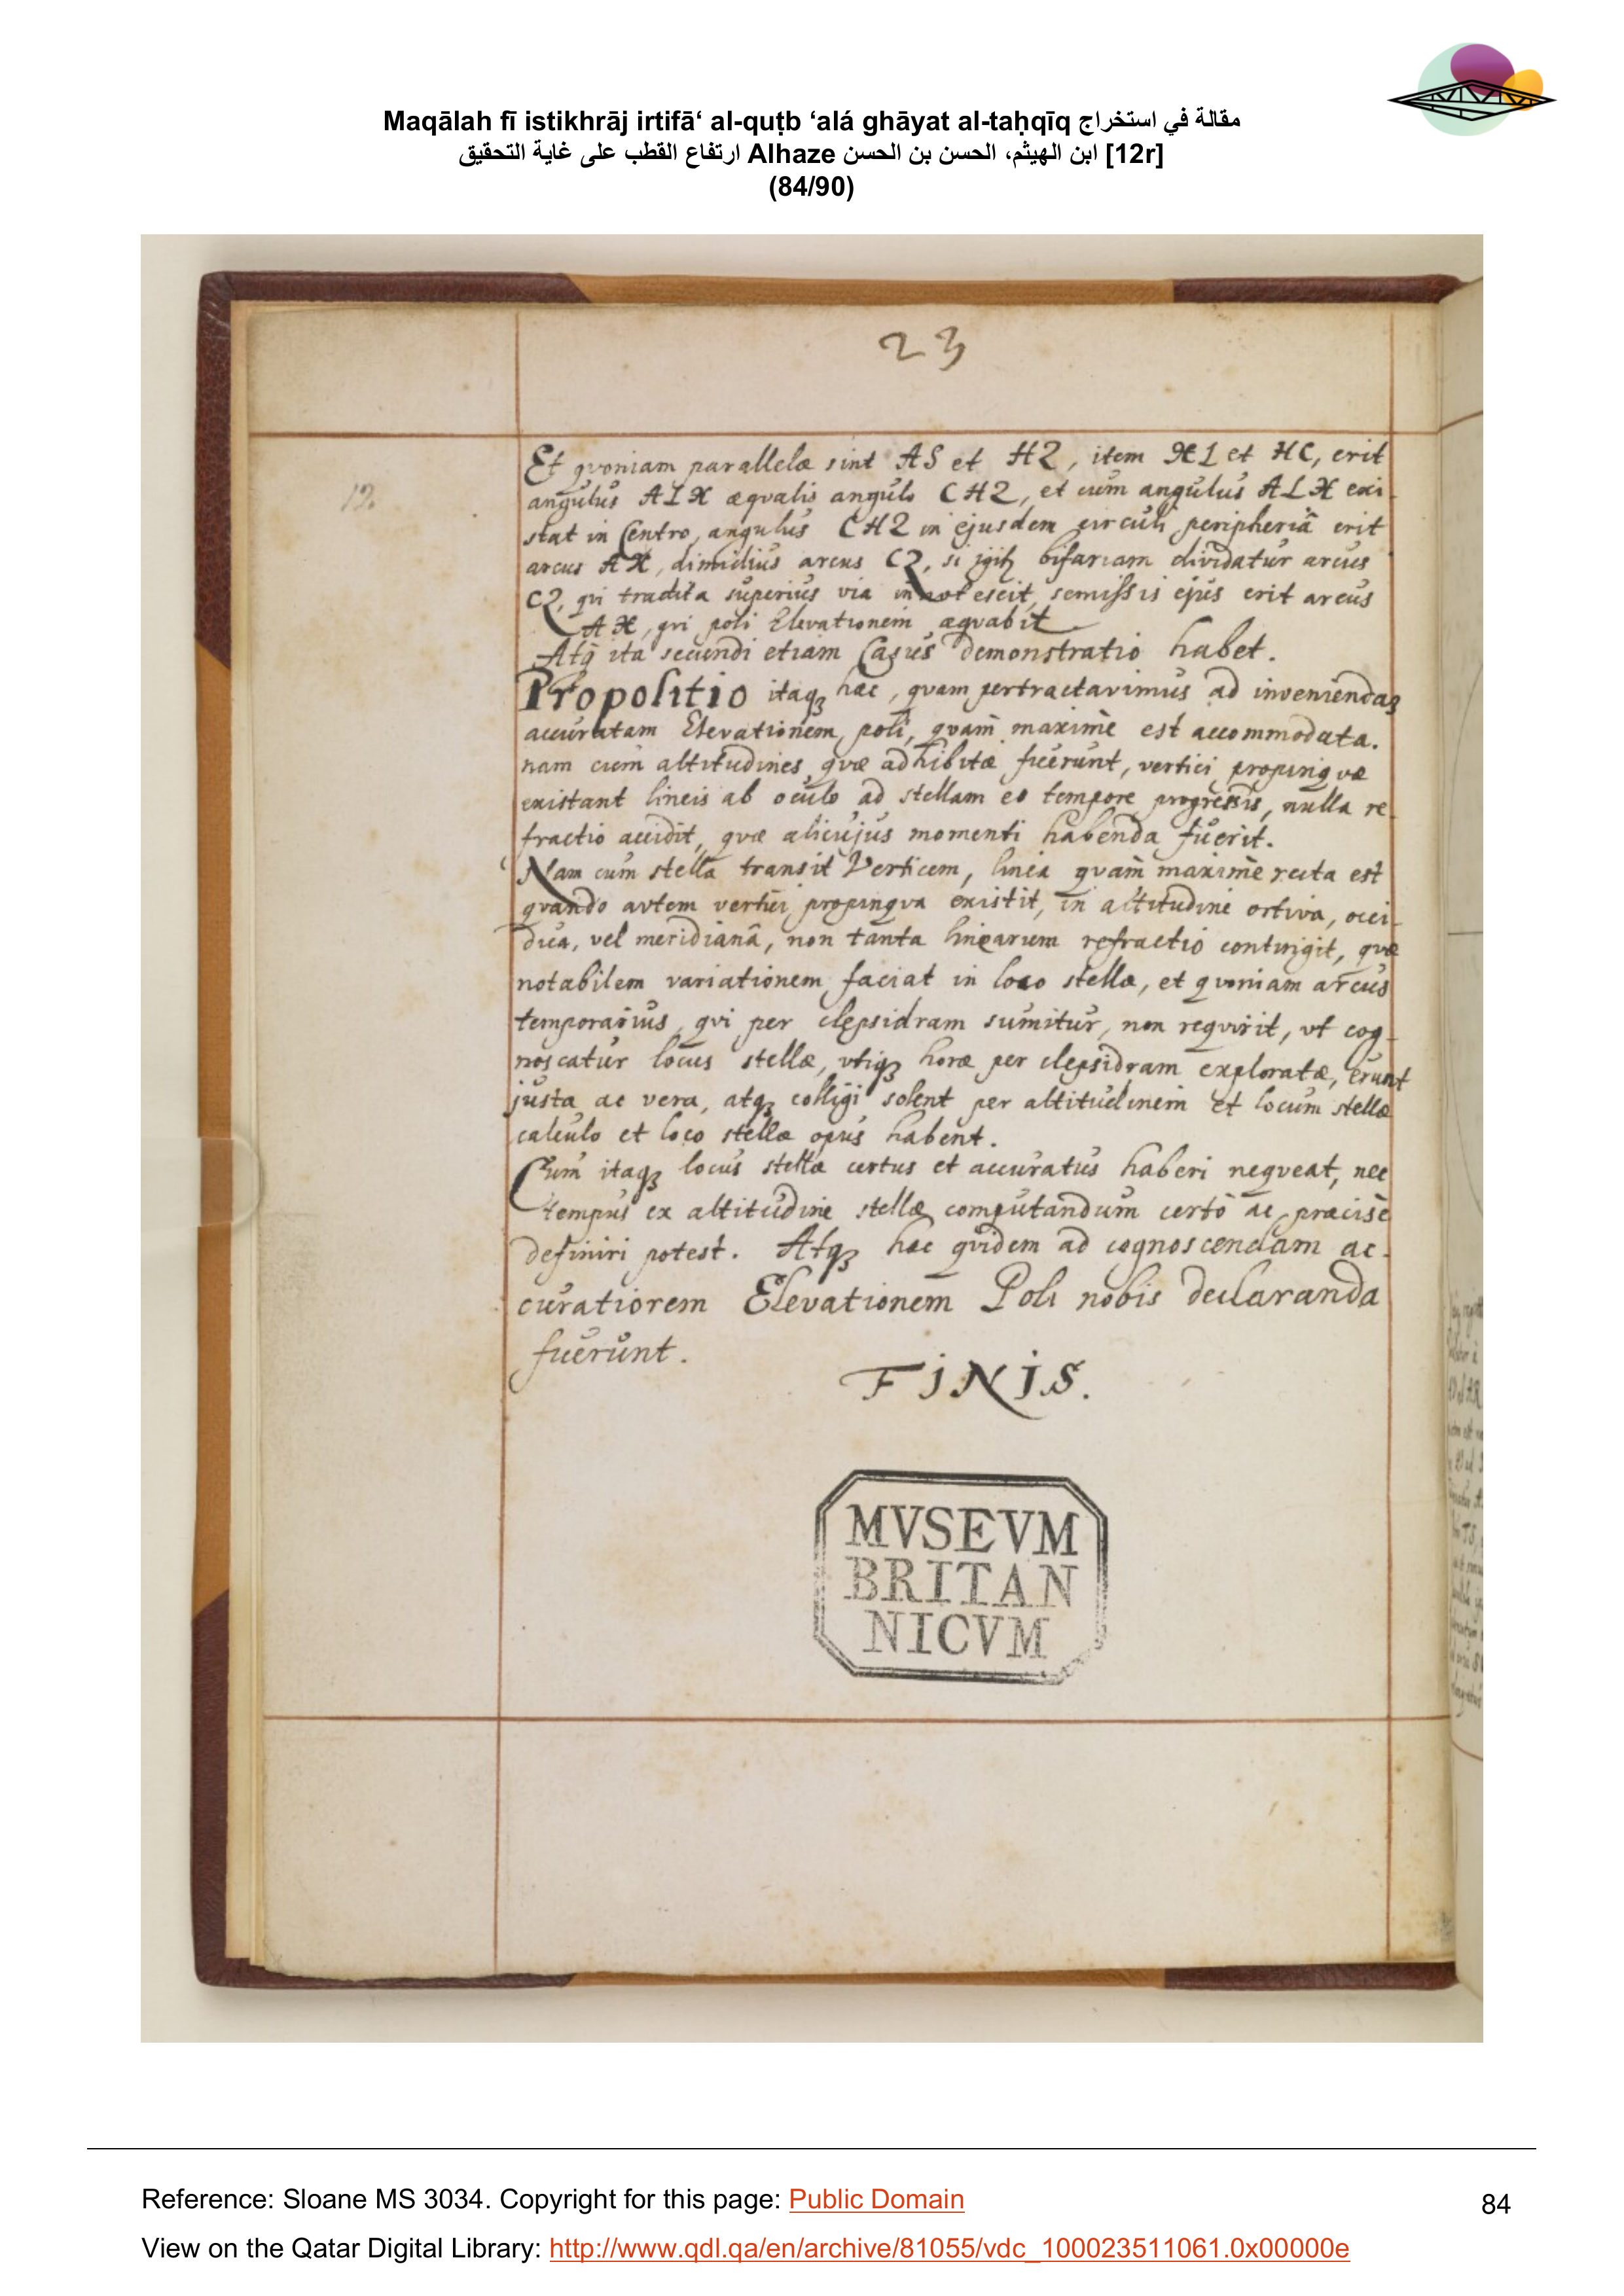 Maqālah fī istikhrāj irtifā‘ al-quṭb ‘alá ghāyat al-taḥqīq مقالة في استخراج
ارتفاع القطب على غاية التحقيق Alhaze ابن الهيثم، الحسن بن الحسن [12r]
(84/90)
23
12.
Et qvoniam parallelæ sint AS et HZ, item XL et HC, erit
angulus ALX æqvalis angulo CHZ, et cum angulus ALX exi-
stat in Centro, angulus CHZ in ejusdem circuli peripheriâ erit
arcus AX, dimidius arcus CZ, si igitz bifariam dividatur arcus
CZ, qvi tradita superius via innotescit, semissis ejus erit arcus
AX, qvi poli Elevationem æqvabit
Atq ita secundi etiam Casus demonstratio habet.
Propositio itaqz hæc, qvam pertractavimus ad inveniendaz
accuratam Elevationem poli, qvam maxime est accommodata.
nam cum altitudines qvæ adhibitæ fuerunt, vertici propinqvæ
existant lineis ab oculo ad stellam eo tempore progressis, nulla re
fractio accidit, qvæ alicujus momenti habenda fuerit.
Nam cum stella transit Verticem, linea qvam maxime recta est
qvando avtem vertici propinqva existit, in altitudine ortiva, occi-
dua, vel meridianâ, non tanta linearum refractio contingit, qvæ
notabilem variationem faciat in loco stellæ, et qvoniam arcus
temporarius, qvi per clepsidram sumitur, non reqvirit, vt cog-
noscatur locus stellæ, vtiqz horæ per clepsidram exploratæ, erunt
justa ac vera, atqz colligi solent per altitudinem et locum stellæ
calculo et loco stellæ opus habent.
Cum itaqz locus stellæ certus et accuratus haberi neqveat, nec
tempus ex altitudine stellæ computandum certò ac præcisè
definiri potest. Atqz hæc qvidem ad cognoscendam ac-
curatiorem Elevationem Poli nobis declaranda
fuerunt.
FINIS.
MVSEVM
BRITAN
NICVM
Reference: Sloane MS 3034. Copyright for this page: Public Domain
84
View on the Qatar Digital Library: http://www.qdl.qa/en/archive/81055/vdc_100023511061.0x00000e